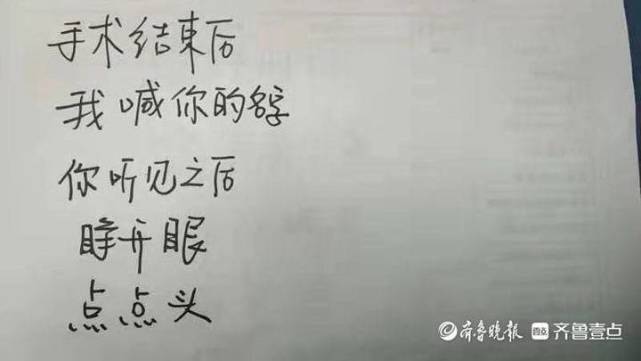 手术结束后
我喊你的名字
你听见之后
睁开眼
点点头
齐鲁晚报 齐鲁壹点